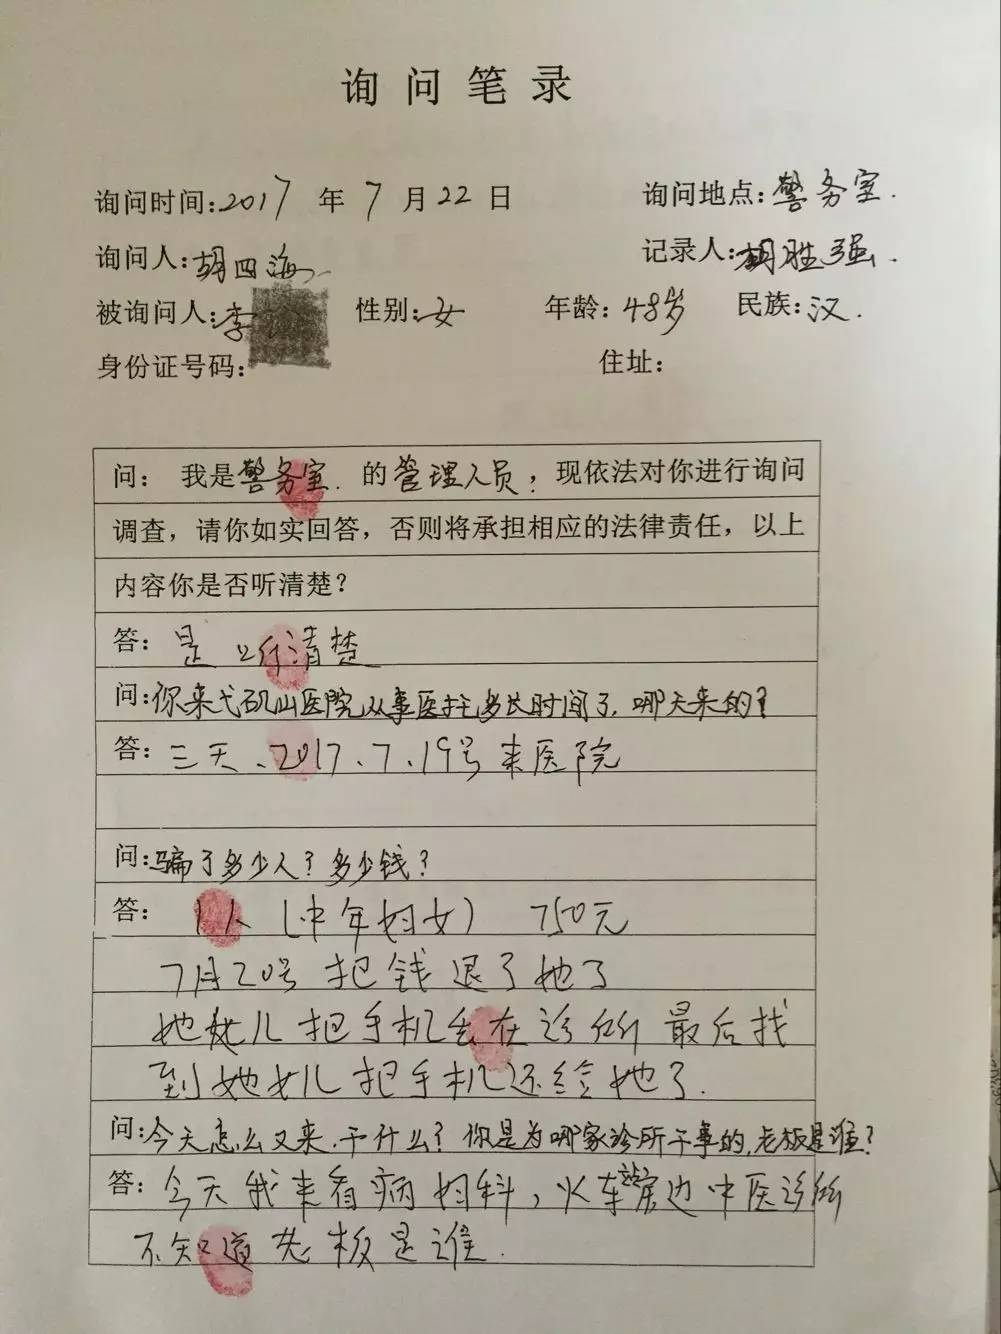 询问笔录
询问时间:2017年7月22日 询问地点:警务室.
询问人:胡四海 记录人:胡胜强.
被询问人:李 性别:女 年龄:48岁 民族:汉.
身份证号码: 住址:
问: 我是警务室.的管理人员,现依法对你进行询问
调查,请你如实回答,否则将承担相应的法律责任,以上
内容你是否听清楚?
答:是 听清楚
问:你来弋矶山医院从事医托多长时间了,哪天来的?
答:三天、2017、7、19号来医院
问:骗了多少人?多少钱?
答: 1人(中年妇女) 750元
7月20号把钱退了她了
她女儿把手机丢在诊所 最后找
到她女儿把手机还给她了.
问:今天怎么又来.干什么?你是为哪家诊所干事的,老板是谁?
答:今天我来看病妇科,火车站旁边中医诊所
不知道老板是谁.